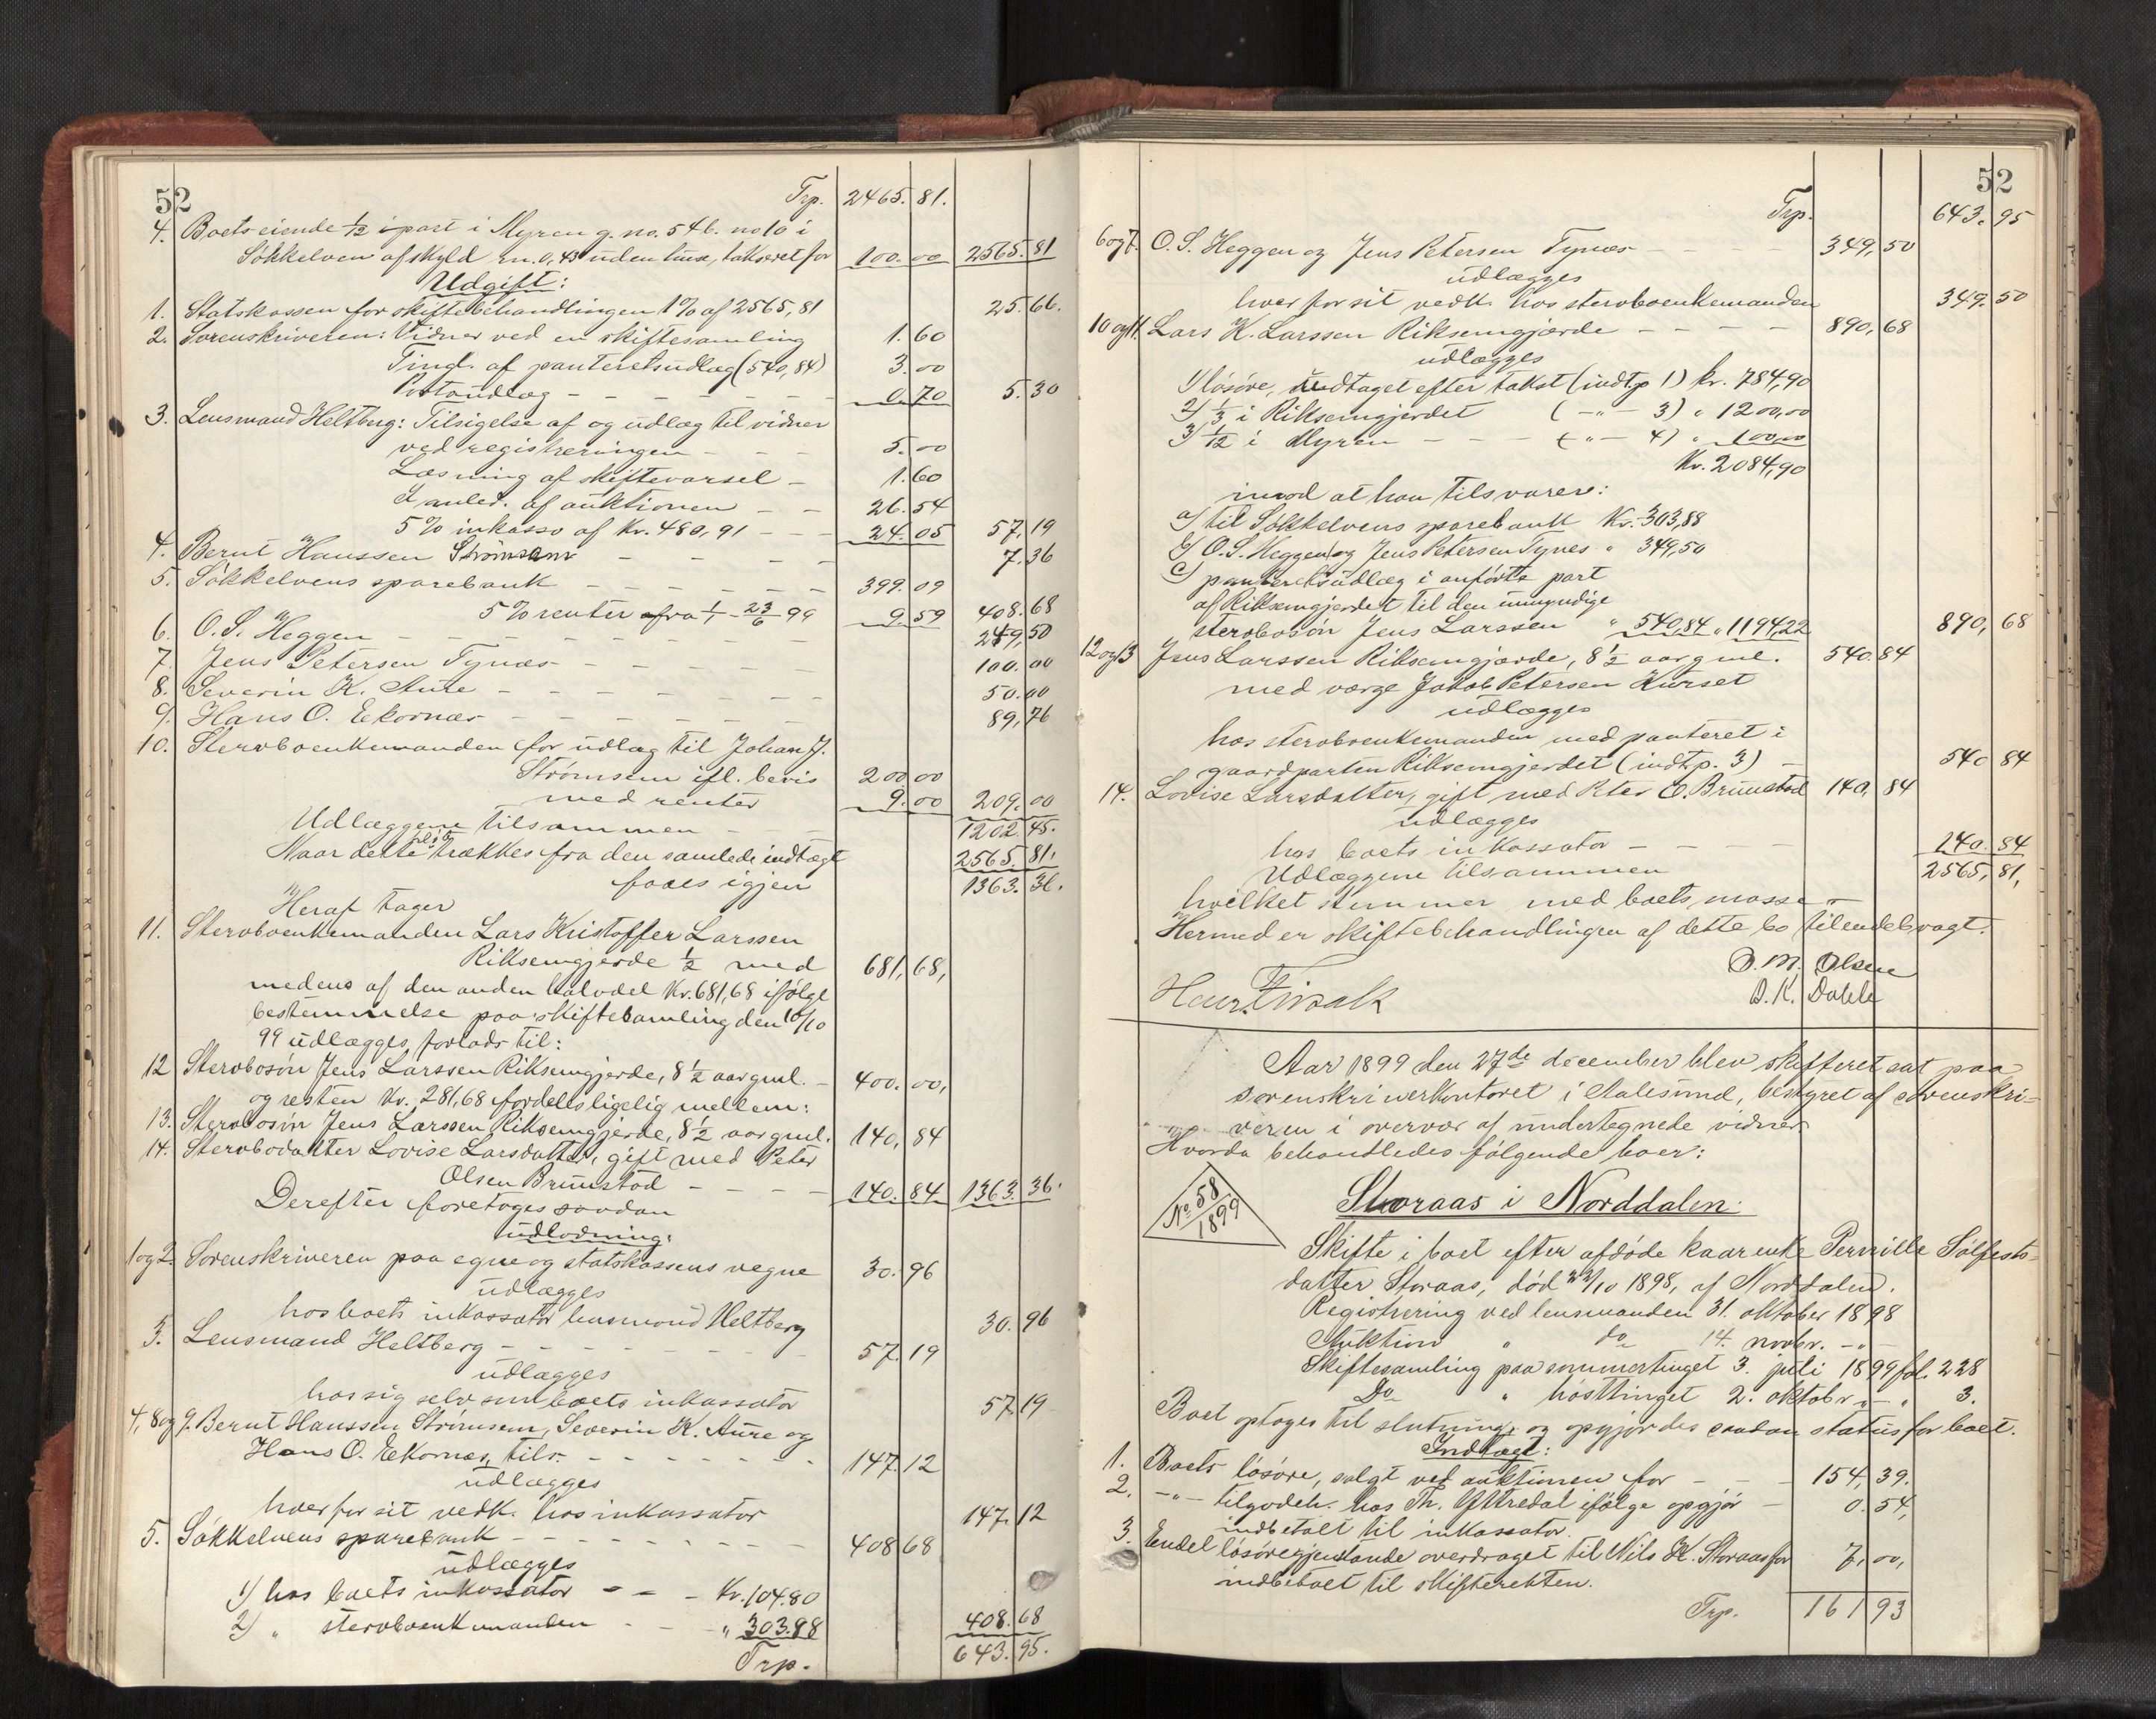 52
Trp. 2465. 81.
4. Boets eiende 1/12 ipart i Myren g. no. 54 b. no 10 i
Søkkelven af skyld Sn. 0,43 uden huse, takseret for 100. 00 2565. 81
Udgift:
1. Statskassen for skiftebehandlingen 1 % af 2565,81 25. 66.
2. Sorenskriveren: Vidner ved en skiftesamling 1. 60
Tingl. af panteretsudlæg (540,84) 3. 00
Portoudlæg - - - - 0. 70 5. 30
3. Lensmand Heltberg: Tilsigelse af og udlæg til vidner
ved registreringen - - - 5. 00
Læsning af skiftevarsel - 1. 60
I anled. af auktionen - - 26. 54
5 % inkasso af Kr. 480,91 - - - 24. 05 57, 19
4. Bernt Hanssen Strømsem - - - - 7. 36
5. Søkkelvens sparebank - - - - 399. 09
5 % renter fra 1/1 - 23/6 99 9. 59 408. 68
6. O. S. Heggen - - - - - - 249, 50
7. Jens Petersen Tynæs - - - - - 100. 00
8. Severin K. Aure - - - - - - 50. 00
9. Hans O. Ekornæs - - - - - - 89, 76
10. Stervboenkemanden for udlæg til Johan J.
Strømsem ifl. bevis 200 00
med renter 9. 00 209. 00
Udlæggene tilsammen - - 1202. 45.
Naar dette beløb trækkes fra den samlede indtægt 2565. 81.
faaes igjen 1363. 36.
Heraf tager
11. Stervboenkemanden Lars Kristoffer Larssen
Riksemgjerde 1/2 med 681, 68,
medens af den anden halvdel Kr. 681,68 ifølge
bestemmelse paa skiftesamling den 10/10
99 udlægges forlods til:
12 Stervbosøn Jens Larssen Riksemgjerde, 8 1/2 aar gml. - 400. 00,
og resten Kr. 281,68 fordeles ligelig mellem:
13. Stervbosøn Jens Larssen Riksemgjerde, 8 1/2 aar gml. 140, 84
14. Stervbodatter Lovise Larsdatter, gift med Peter
Olsen Brunstad - - - - 140. 84 1363. 36.
Derefter foretoges saadan
udlodning:
1 og 2. Sorenskriveren paa egne og statskassens vegne 30. 96
udlægges
hos boets inkassator lensmand Heltberg 30. 96
3. Lensmand Heltberg - - - - - - 57. 19
udlægges
hos sig selv som boets inkassator 57. 19
4, 8 og 9. Bernt Hanssen Strømsem, Severin K. Aure og
Hans O. Ekornæs, tils. - - - - - - 147. 12
udlægges
hver for sit vedk. hos inkassator 147. 12
5. Søkkelvens sparebank - - - - - - 408 68
udlægges
1) hos boets inkassator - - - Kr. 104.80
2) " stervboenkemanden - - - " 303.88 408. 68
Trp. 643. 95.
52
Trp. 643. 95
6 og 7. O. S. Heggen og Jens Petersen Tynæs - - 349, 50
udlægges
hver for sit vedk. hos stervboenkemanden 349. 50
10 og 11. Lars K. Larssen Riksemgjærde - - - - 890, 68
udlægges
1) løsøre, undtaget efter takst (indtp 1) kr. 784,90
2) 1/3 i Riksemgjerdet ( - " - 3) " 1200,00
3) 1/12 i Myren - - - ( - " - 4) " 100,00
Kr. 2084,90
imod at han tilsvarer:
a) til Søkkelvens sparebank Kr. 303,88
b) O. S. Heggen og Jens Petersen Tynes " 349,50
c) panteretsudlæg i anførte part
af Riksemgjerdet til den umyndige
stervbosøn Jens Larssen " 540,84 " 1194,22 890, 68
12 og 13 Jens Larssen Riksemgjærde, 8 1/2 aar gml. 540. 84
med værge Jakob Petersen Kurset
udlægges
hos stervboenkemanden med panteret i
gaardparten Riksemgjerdet (indt. p. 3) - 540 84
14. Lovise Larsdatter, gift med Peter O. Brunstad 140, 84
udlægges
hos boets inkassator - - - - 140. 84
Udlæggene tilsammen 2565, 81,
hvilket stemmer med boets masse.
Hermed er skiftebehandlingen af dette bo tilendebragt.
O. M. Olsen
D. K. Dahle
Aar 1899 den 27de december blev skifteret sat paa
sorenskriverkontoret i Aalesund, bestyret af sorenskri-
veren i overvær af undertegnede vidner.
Hvorda behandledes følgende boer:
No. 58
1899
Storaas i Norddalen:
Skifte i boet efter afdøde kaarenke Pernille Sølfests-
datter Storaas, død 22/10 1898, af Norddalen.
Registrering ved lensmanden 31. oktober 1898
Auktion " do 14. novbr. - " -
Skiftesamling paa sommertinget 3. juli 1899 fol. 228
Do " høsttinget 2. oktobr. " - " 3.
Boet optoges til slutning og opgjordes saadan status for boet.
Indtægt:
1. Boets løsøre, solgt ved auktionen for - - - 154, 39.
2. - " - tilgodeh. hos Th. Yttredal ifølge opgjør - 0. 54,
indbetalt til inkassator.
3. Endel løsøregjenstande overdraget til Nils K. Storaas for 7, 00,
indbetalt til skifteretten.
Trp. 161 93